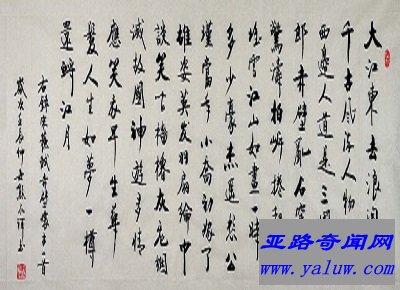 大江東去浪淘
千古風流人物
西邊人道是三國
郎赤壁亂石穿
驚濤拍岸捲起
堆雪江山如畫一時
多少豪傑遥想公
瑾當年小喬初嫁了
雄姿英發羽扇綸巾
談笑間檣櫓灰飛煙
滅故國神遊多情
應笑我早生華
髮人生如夢一樽
還酹江月
右錄宋蘇軾赤壁懷古一首
亚路奇闻网
www.yaluw.com